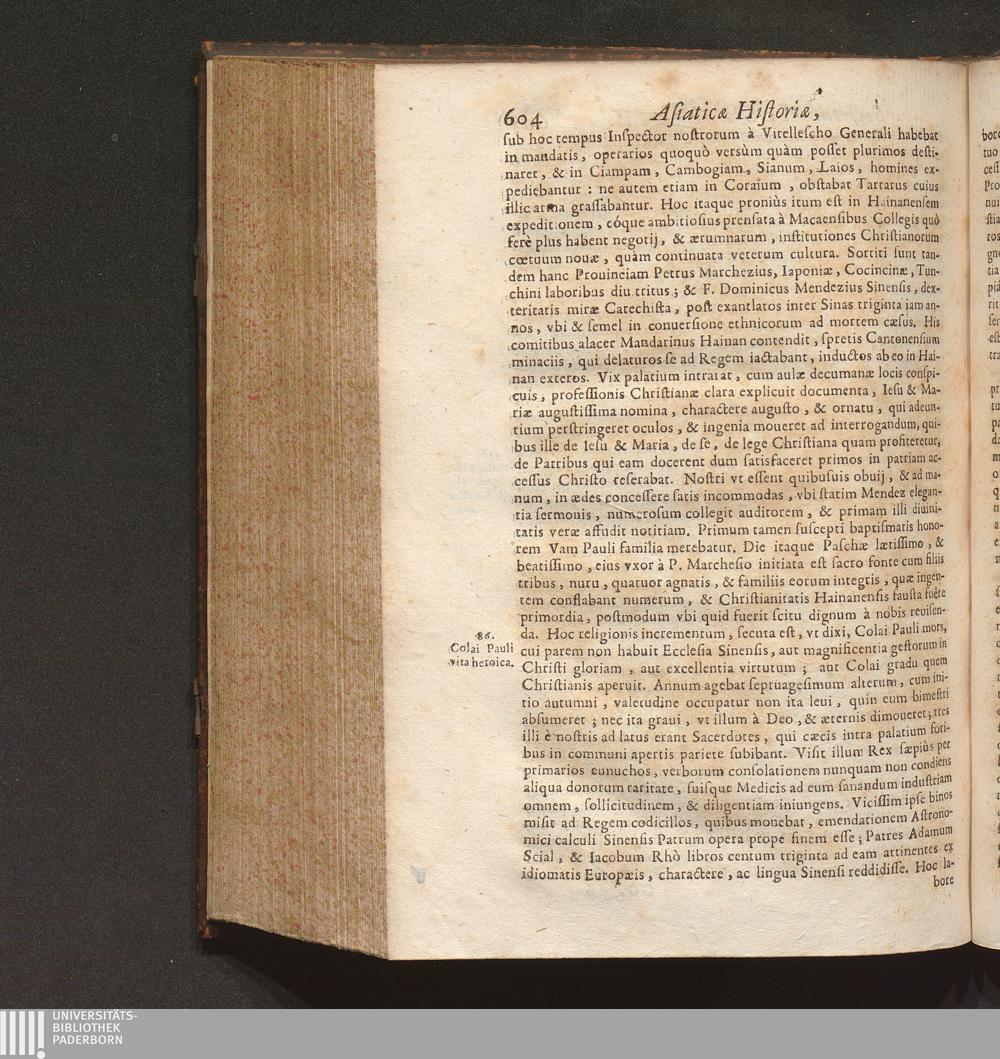 604 Asiaticæ Historiæ,
sub hoc tempus Inspector nostrorum à Vitellescho Generali habebat
in mandatis, operarios quoquò versùm quàm posset plurimos desti-
naret, & in Ciampam, Cambogiam, Sianum, Laios, homines ex-
pediebantur : ne autem etiam in Coraium, obstabat Tartarus cuius
illic arma grassabantur. Hoc itaque proniùs itum est in Hainanensem
expeditionem, cóque ambitiosius prensata à Macaensibus Collegis quò
ferè plus habent negotij, & ærumnarum, institutiones Christianorum
cœtuum nouæ, quàm continuata veterum cultura. Sortiti sunt tan-
dem hanc Prouinciam Petrus Marchezius, Iaponiæ, Cocincinæ, Tun-
chini laboribus diu tritus ; & F. Dominicus Mendezius Sinensis, dex-
teritatis miræ Catechista, post exantlatos inter Sinas triginta iam an-
nos, vbi & semel in conuersione ethnicorum ad mortem cæsus. His
comitibus alacer Mandarinus Hainan contendit, spretis Cantonensium
minaciis, qui delaturos se ad Regem iactabant, inductos ab eo in Hai-
nan exteros. Vix palatium intrarat, cum aulæ decumanæ locis conspi-
cuis, professionis Christianæ clara explicuit documenta, Iesu & Ma-
riæ augustissima nomina, charactere augusto, & ornatu, qui adeun-
tium perstringeret oculos, & ingenia moueret ad interrogandum, qui-
bus ille de Iesu & Maria, de se, de lege Christiana quam profiteretur,
de Patribus qui eam docerent dum satisfaceret primos in patriam ac-
cessus Christo reserabat. Nostri vt essent quibusuis obuij, & ad ma-
num, in ædes concessere satis incommodas, vbi statim Mendez elegan-
tia sermonis, numerosum collegit auditorem, & primam illi diuini-
tatis veræ affudit notitiam. Primum tamen suscepti baptismatis hono-
rem Vam Pauli familia merebatur. Die itaque Paschæ lætissimo, &
beatissimo, eius vxor à P. Marchesio initiata est sacro fonte cum filiis
tribus, nuru, quatuor agnatis, & familiis eorum integris, quæ ingen-
tem conflabant numerum, & Christianitatis Hainanensis fausta fuêre
primordia, postmodum vbi quid fuerit scitu dignum à nobis reuisen-
da. Hoc religionis incrementum, secuta est, vt dixi, Colai Pauli mors,
86.
Colai Pauli
vita heroica.
cui parem non habuit Ecclesia Sinensis, aut magnificentia gestorum in
Christi gloriam, aut excellentia virtutum ; aut Colai gradu quem
Christianis aperuit. Annum agebat septuagesimum alterum, cum ini-
tio autumni, valetudine occupatur non ita leui, quin eum bimestri
absumeret ; nec ita graui, vt illum à Deo, & æternis dimoueret ; tres
illi è nostris ad latus erant Sacerdotes, qui cæcis intra palatium fori-
bus in communi apertis pariete subibant. Visit illum Rex sæpiùs per
primarios eunuchos, verborum consolationem nunquam non condiens
aliqua donorum raritate, suisque Medicis ad eum sanandum industriam
omnem, sollicitudinem, & diligentiam iniungens. Vicissim ipse binos
misit ad Regem codicillos, quibus monebat, emendationem Astrono-
mici calculi Sinensis Patrum opera prope finem esse ; Patres Adamum
Scial, & Iacobum Rhò libros centum triginta ad eam attinentes ex
idiomatis Europæis, charactere, ac lingua Sinensi reddidisse. Hoc la-
bore
UNIVERSITÄTS-
BIBLIOTHEK
PADERBORN